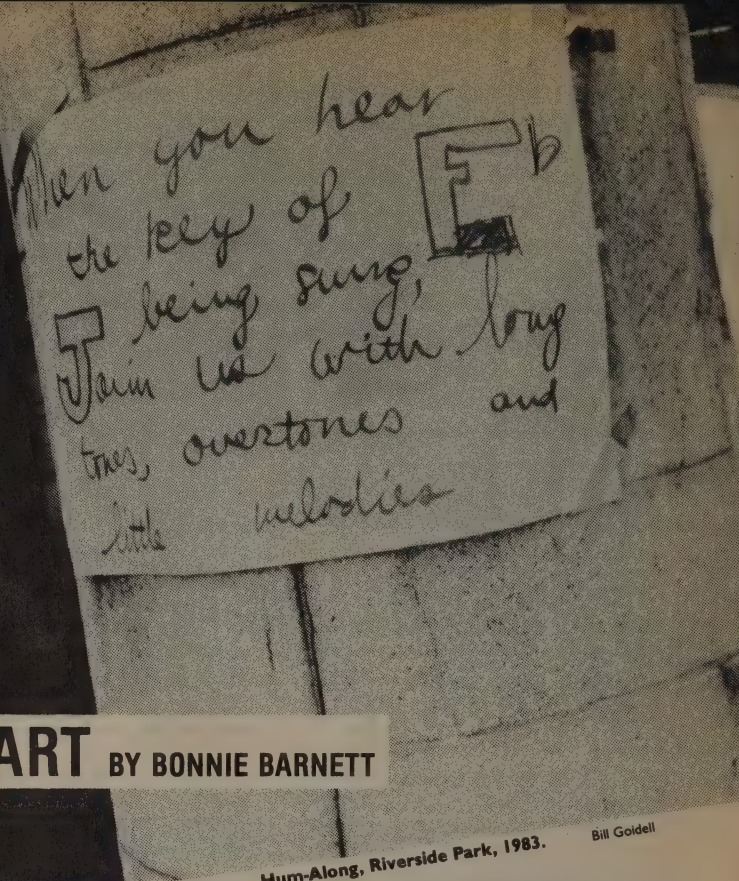 When you hear
the key of E♭
being sung,
Join us with long
tones, overtones and
little melodies
ART BY BONNIE BARNETT
Hum-Along, Riverside Park, 1983.
Bill Goidell